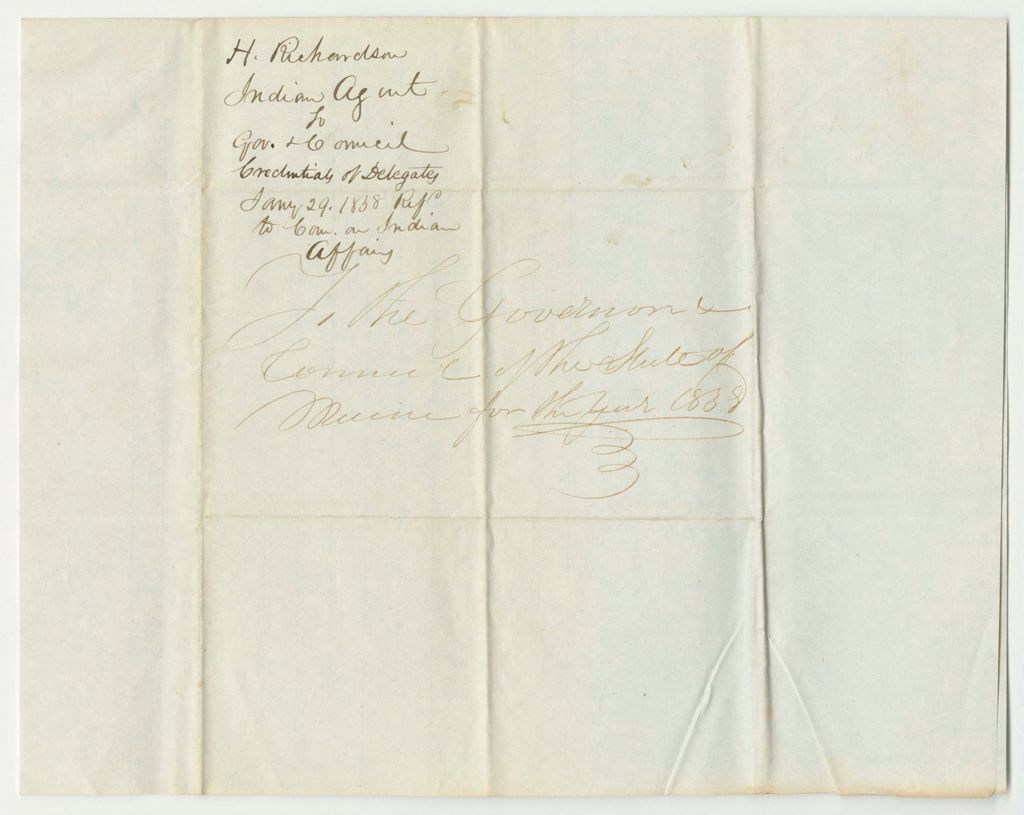 H. Richardson
Indian Agent
To
Gov. & Council
Credentials of Delegates
Jany 29. 1838 Refd
to Com. on Indian
Affairs
To the Governor &
Council of the State of
Maine for the year 1838